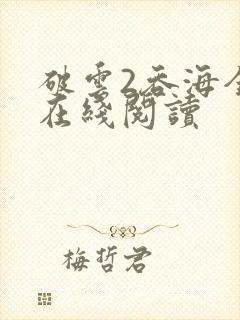 破雲2吞海全
在綫閱讀
梅哲君